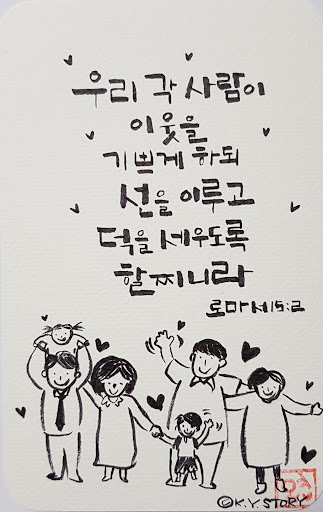 우리 각 사람이
이웃을
기쁘게 하되
선을 이루고
덕을 세우도록
할찌니라
로마서15:2
©K.Y.STORY